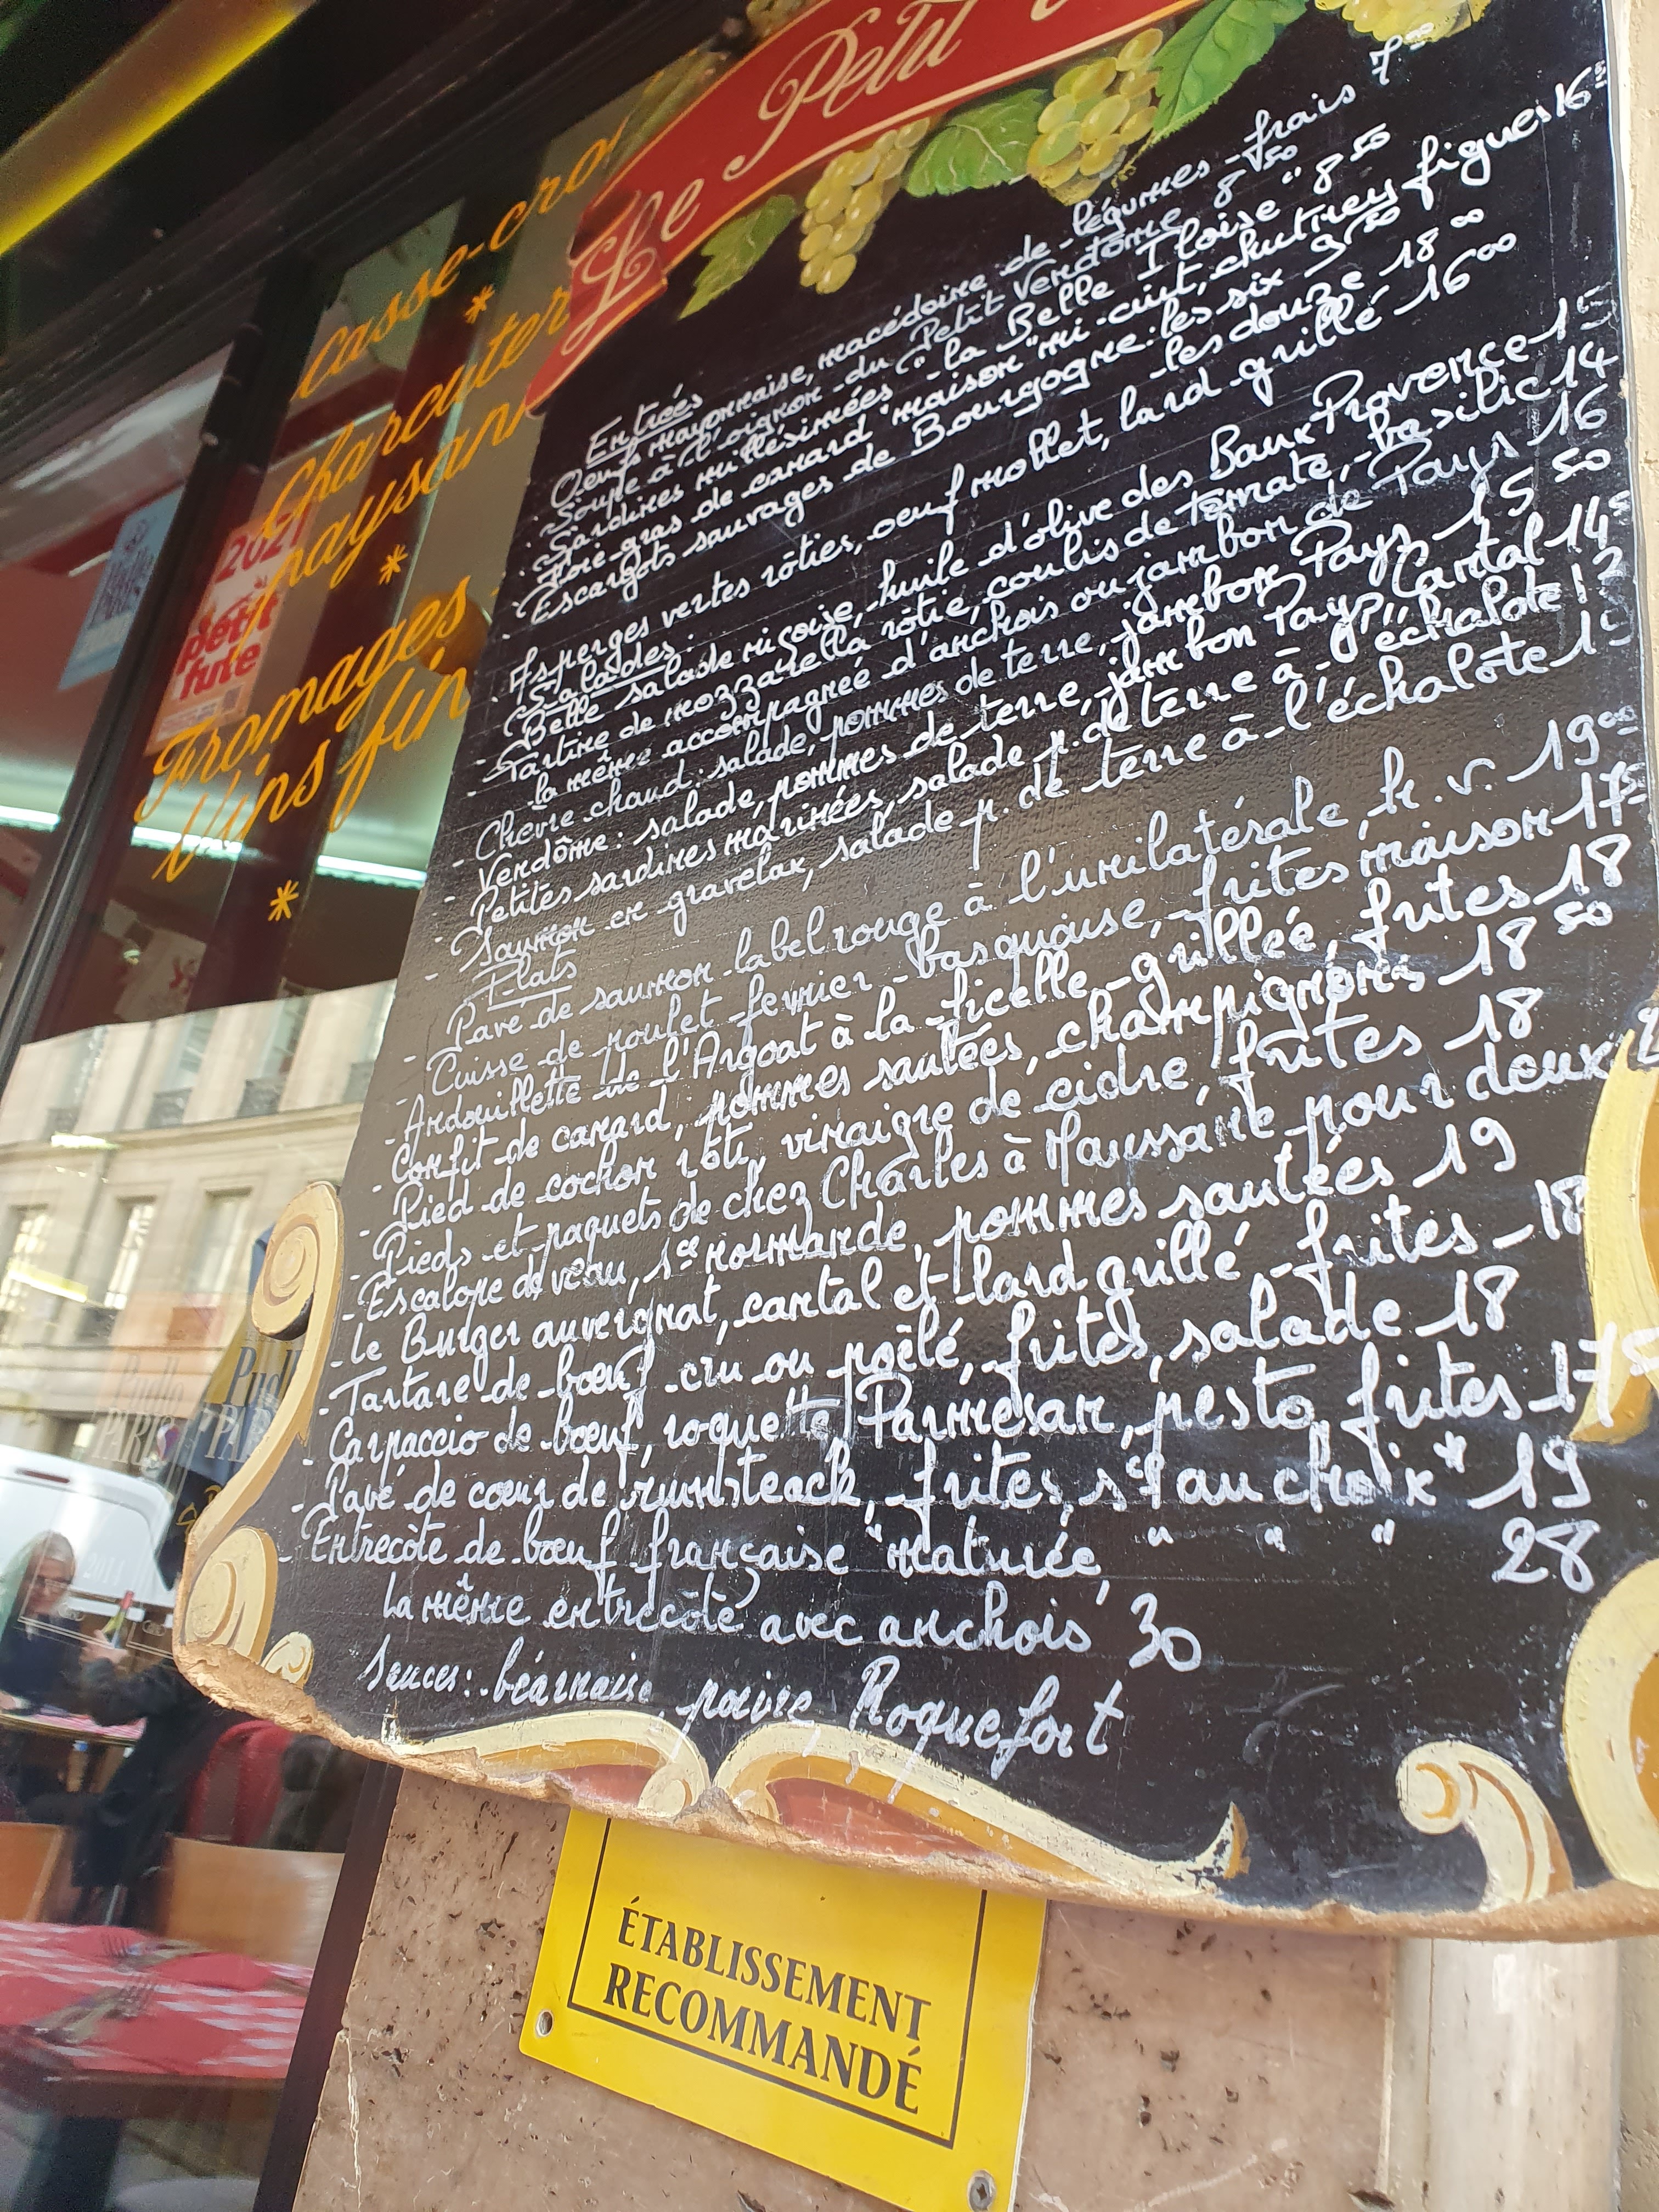 Le Petit
casse-cro
*
Charcuter
paysann
*
Fromages
Vins fin
*
2021
petit
futé
Entrées
Oeufs mayonnaise, macédoine de légumes frais 7
- Soupe à l'oignon du Petit Vendôme 8 50
- Sardines millésimées "la Belle Iloise" 8 50
- Foie gras de canard "maison" mi-cuit, chutney figues 16
- Escargots sauvages de Bourgogne: les six 9 50
les douze 18 00
- Asperges vertes rôties, oeuf mollet, lard grillé 16 00
Salades:
- Belle salade niçoise, huile d'olive des Baux Provence 15
- Tartine de mozzarella rôtie, coulis de tomate, basilic 14
la même accompagnée d'anchois ou jambon de Pays 16
- Chèvre chaud: salade, pommes de terre, jambon Pays 15 50
- Vendôme: salade, pommes de terre, jambon Pays, Cantal 14
- Petites sardines marinées, salade p. de terre à l'échalote
- Saumon en gravelax, salade p. de terre à l'échalote
Plats
- Pavé de saumon label rouge à l'unilatérale, h.v. 19
- Cuisse de poulet fermier basquaise, frites maison 17
- Andouillette de l'Argoat à la ficelle grillée, frites 18
- Confit de canard, pommes sautées, champignons 18 50
- Pied de cochon rôti, vinaigre de cidre, frites 18
- Pieds et paquets de chez Charles à Maussane pour deux
- Escalope de veau, sce normande, pommes sautées 19
- Le Burger auvergnat, cantal et lard grillé, frites 18
- Tartare de boeuf cru ou poêlé, frites, salade 18
- Carpaccio de boeuf, roquette, Parmesan, pesto, frites 17
- Pavé de coeur de rumsteack, frites, sce "au choix" 19
- Entrecôte de boeuf française "maturée, " " " 28
La même entrecôte avec anchois 30
Sauces: béarnaise, poivre, Roquefort
Pudlo
PARIS
2011
ÉTABLISSEMENT
RECOMMANDÉ